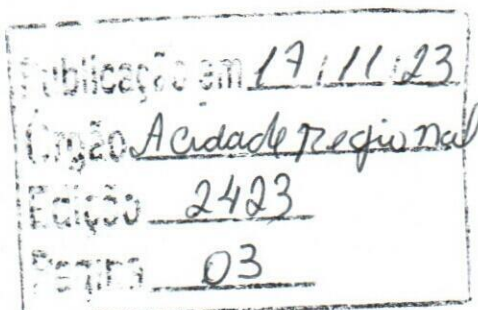 Publicação em 17/11/23
Órgão A cidade regional
Edição 2423
Página 03